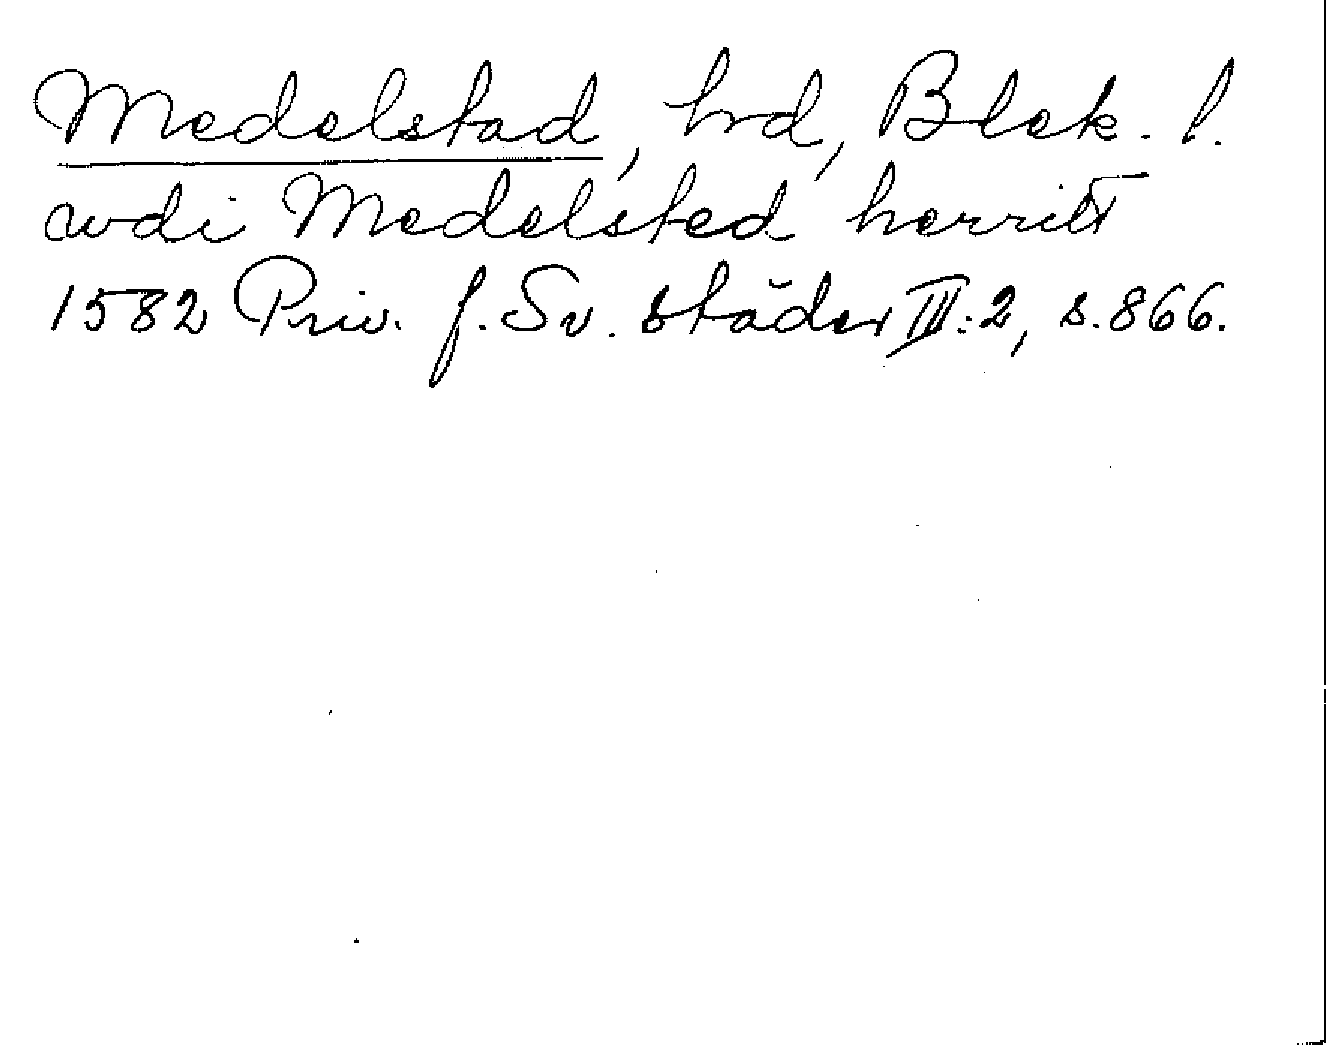 Medelstad, hrd, Blek. l.
wdi Medelsted herritt
1582 Priv. f. Sv. städer III:2, s. 866.